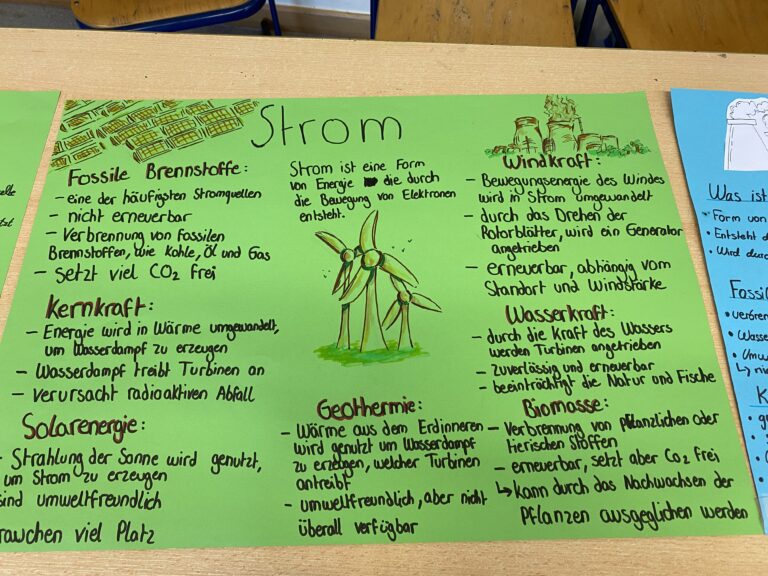 Strom
Fossile Brennstoffe:
- eine der häufigsten Stromquellen
- nicht erneuerbar
- Verbrennung von fossilen
Brennstoffen, wie Kohle, Öl und Gas
- setzt viel CO2 frei
Kernkraft:
- Energie wird in Wärme umgewandelt,
um Wasserdampf zu erzeugen
- Wasserdampf treibt Turbinen an
- verursacht radioaktiven Abfall
Solarenergie:
- Strahlung der Sonne wird genutzt,
um Strom zu erzeugen
sind umweltfreundlich
rauchen viel Platz
Strom ist eine Form
von Energie die durch
die Bewegung von Elektronen
entsteht.
Geothermie:
- Wärme aus dem Erdinneren
wird genutzt um Wasserdampf
zu erzeugen, welcher Turbinen
antreibt
- umweltfreundlich, aber nicht
überall verfügbar
Windkraft:
- Bewegungsenergie des Windes
wird in Strom umgewandelt
- durch das Drehen der
Rotorblätter, wird ein Generator
angetrieben
- erneuerbar, abhängig vom
Standort und Windstärke
Wasserkraft:
- durch die Kraft des Wassers
werden Turbinen angetrieben
- zuverlässig und erneuerbar
- beeinträchtigt die Natur und Fische
Biomasse:
- Verbrennung von pflanzlichen oder
tierischen Stoffen
- erneuerbar, setzt aber Co2 frei
↳ Kann durch das Nachwachsen der
Pflanzen ausgeglichen werden
Was ist
• Form von
• Entsteht d
• Wird durc
Fossil
• verbren
• Wasse
• Umw
↳ ni
K